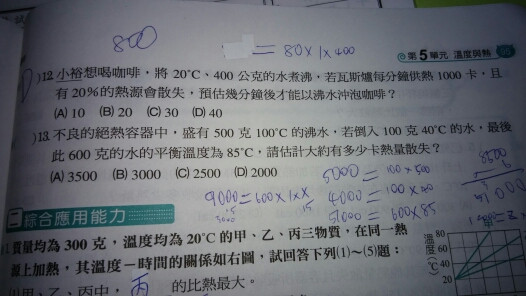 800
= 80×1×400
第5單元 溫度與熱
)12.小裕想喝咖啡，將 20℃、400 公克的水煮沸，若瓦斯爐每分鐘供熱 1000 卡，且
有 20%的熱源會散失，預估幾分鐘後才能以沸水沖泡咖啡？
(A) 10 (B) 20 (C) 30 (D) 40
)13.不良的絕熱容器中，盛有 500 克 100℃的沸水，若倒入 100 克 40℃的水，最後
此 600 克的水的平衡溫度為 85℃，請估計大約有多少卡熱量散失？
(A) 3500 (B) 3000 (C) 2500 (D) 2000
9000=600×1×X
15
5000=100×500
4000=100×40
51000=600×85
二 綜合應用能力
1.質量均為 300 克，溫度均為 20℃的甲、乙、丙三物質，在同一熱
源上加熱，其溫度－時間的關係如右圖，試回答下列⑴～⑸題：
⑴甲、乙、丙中，丙 的比熱最大。
溫度(℃)
80
60
40
20
甲